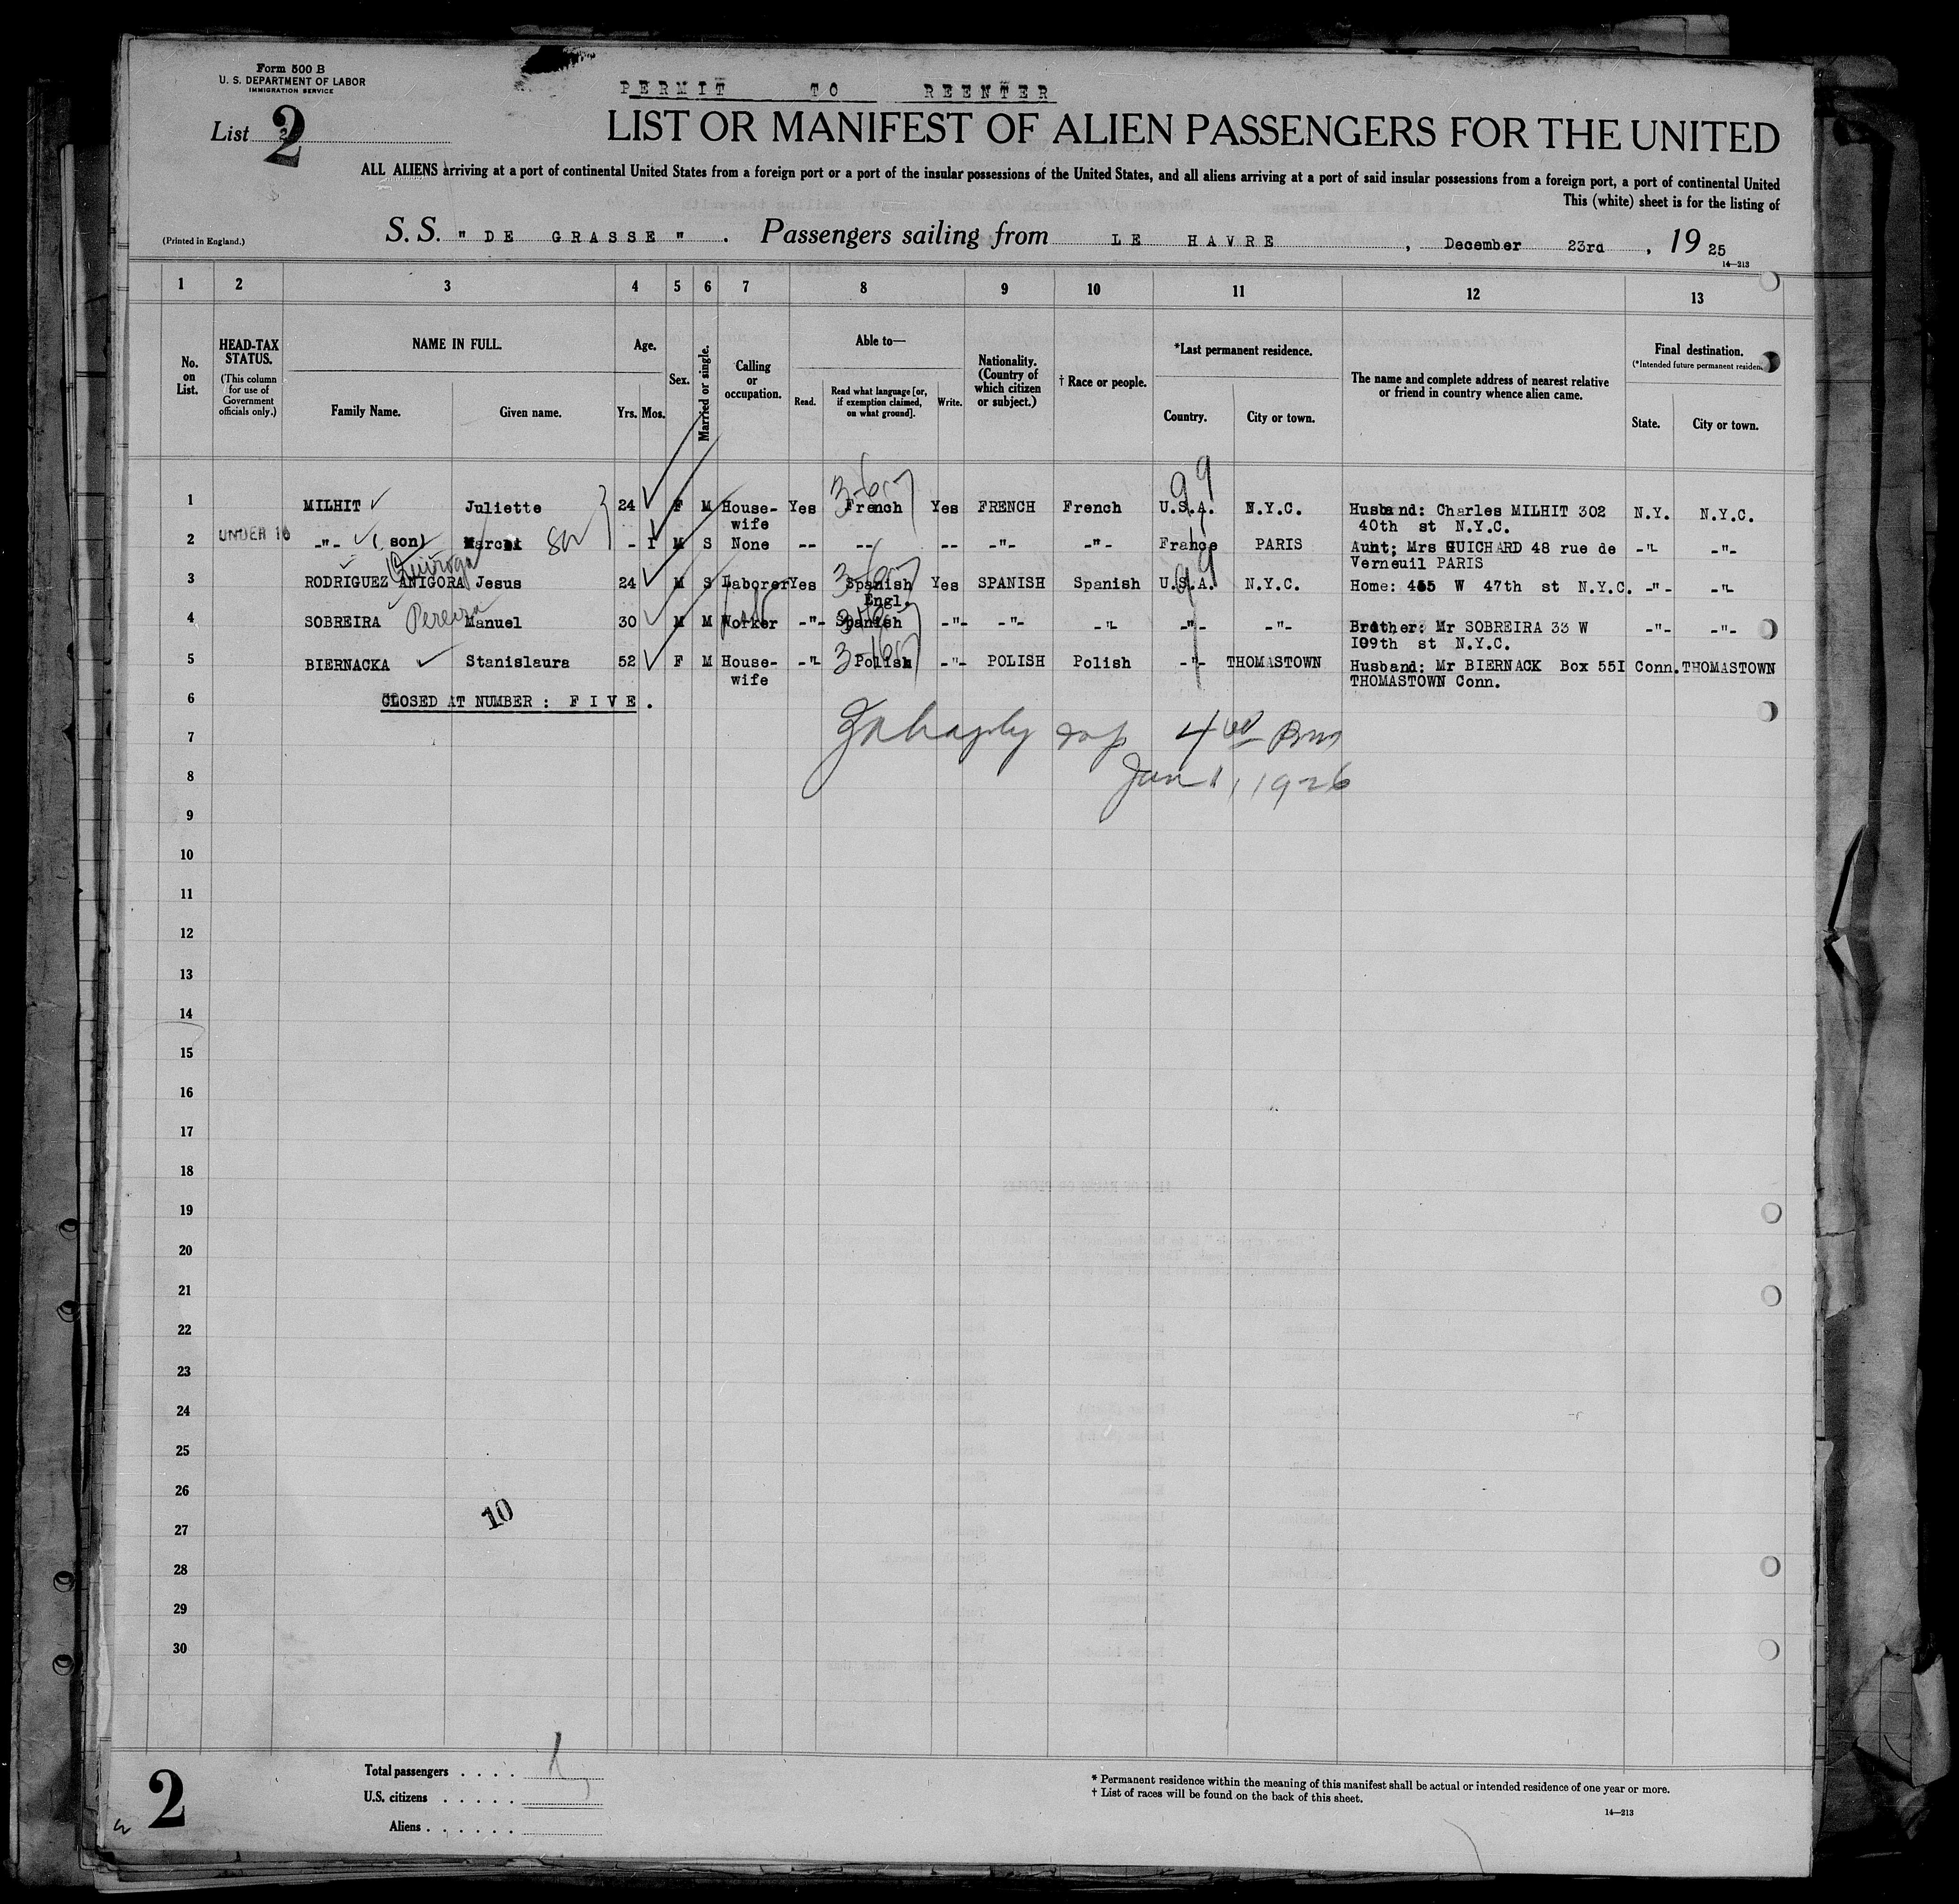 Form 500 B
U. S. DEPARTMENT OF LABOR
IMMIGRATION SERVICE
PERMIT TO REENTER
List 2
2
LIST OR MANIFEST OF ALIEN PASSENGERS FOR THE UNITED
ALL ALIENS arriving at a port of continental United States from a foreign port or a port of the insular possessions of the United States, and all aliens arriving at a port of said insular possessions from a foreign port, a port of continental United
This (white) sheet is for the listing of
(Printed in England.)
S. S. " DE GRASSE " . Passengers sailing from LE HAVRE , December 23rd , 19 25
14—213
1 2 3 4 5 6 7 8 9 10 11 12 13
No. on List.
HEAD-TAX STATUS. (This column for use of Government officials only.)
NAME IN FULL.
Family Name. Given name.
Age.
Yrs. Mos.
Sex.
Married or single.
Calling or occupation.
Able to—
Read. Read what language [or, if exemption claimed, on what ground]. Write.
Nationality. (Country of which citizen or subject.)
† Race or people.
*Last permanent residence.
Country. City or town.
The name and complete address of nearest relative or friend in country whence alien came.
Final destination.
(*Intended future permanent residen
State. City or town.
1 MILHIT Juliette 24 F M House-wife Yes French Yes FRENCH French U.S.A. N.Y.C. Husband: Charles MILHIT 302 40th st N.Y.C. N.Y. N.Y.C.
2 UNDER 16 -"- ( son) son - I M S None -- -- -- -"- -"- France PARIS Auht; Mrs GUICHARD 48 rue de Verneuil PARIS -"- -"-
Quiroga
3 RODRIGUEZ ANIGORA Jesus 24 M S Laborer Yes Spanish Engl. Yes SPANISH Spanish U.S.A. N.Y.C. Home: 465 W 47th st N.Y.C. -"- -"-
4 SOBREIRA Pereira Manuel 30 M M Worker -"- Spanish -"- -"- -"- -"- -"- Brother: Mr SOBREIRA 33 W I09th st N.Y.C. -"- -"-
5 BIERNACKA Stanislaura 52 F M House-wife -"- Polish -"- POLISH Polish -"- THOMASTOWN Husband: Mr BIERNACK Box 55I THOMASTOWN Conn. Conn. THOMASTOWN
6 CLOSED AT NUMBER : FIVE .
7
Jan 1, 1926
8
9
10
11
12
13
14
15
16
17
18
19
20
21
22
23
24
25
26
10
27
28
29
30
2
Total passengers . . . .
U.S. citizens . . . . .
Aliens . . . . . .
* Permanent residence within the meaning of this manifest shall be actual or intended residence of one year or more.
† List of races will be found on the back of this sheet.
14—213